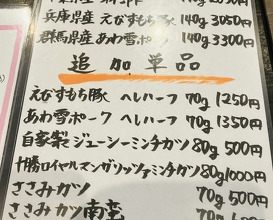 兵庫県産 えびすもち豚 140g 3050円
群馬県産 あわ雪ポーク 140g 3300円
追加単品
えびすもち豚 ヘレハーフ 70g 1250円
あわ雪ポーク ヘレハーフ 70g 1350円
自家製ジューシーミンチカツ 80g 500円
十勝ロイヤルマンガリッツァミンチカツ 80g 1000円
ささみカツ 70g 500円
ささみカツ南蛮 70g 600円